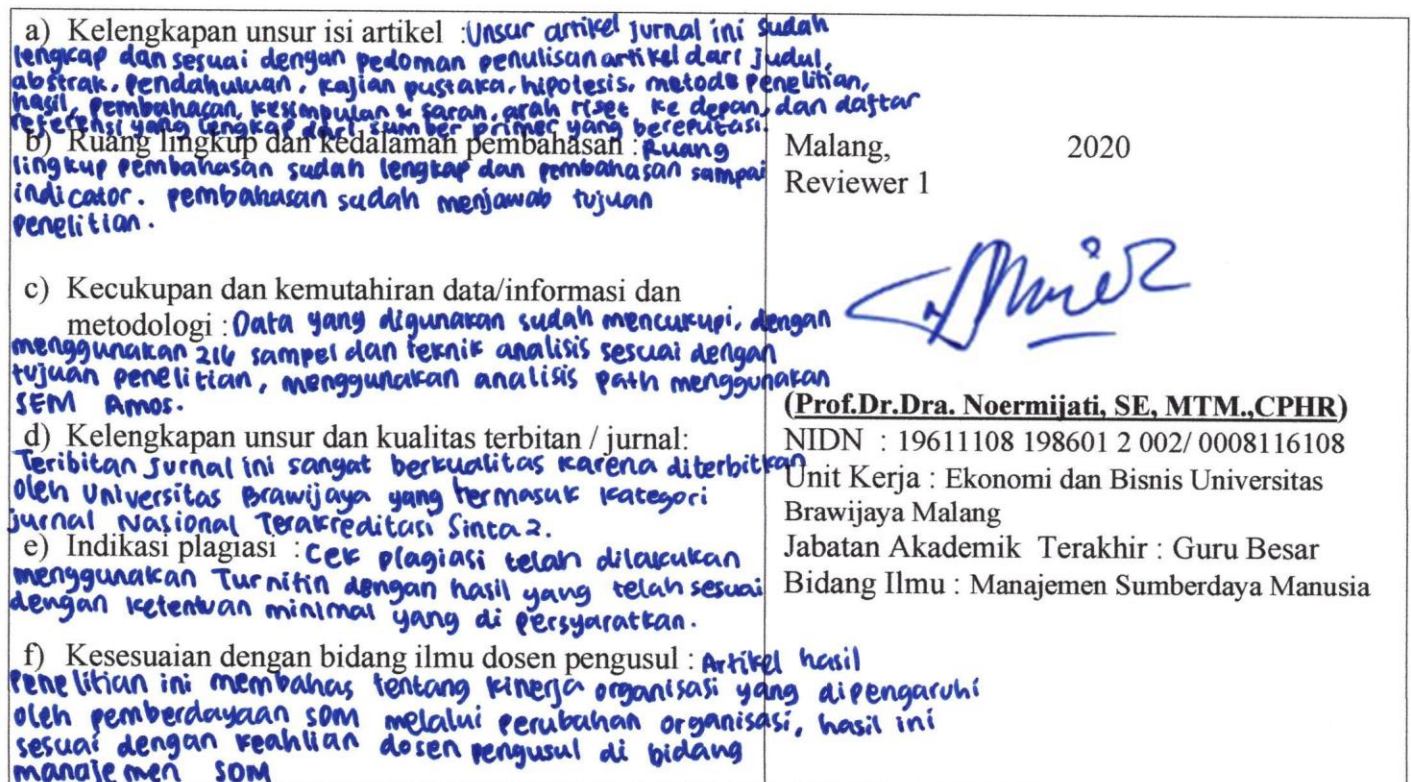 a) Kelengkapan unsur isi artikel : Unsur artikel jurnal ini sudah
lengkap dan sesuai dengan pedoman penulisan artikel dari judul,
abstrak, pendahuluan, kajian pustaka, hipotesis, metode penelitian,
hasil, pembahasan, kesimpulan & saran, arah riset ke depan, dan daftar
referensi yang lengkap dari sumber primer yang bereputasi.
b) Ruang lingkup dan kedalaman pembahasan : Ruang
lingkup pembahasan sudah lengkap dan pembahasan sampai
indicator. pembahasan sudah menjawab tujuan
penelitian.
c) Kecukupan dan kemutahiran data/informasi dan
metodologi : Data yang digunakan sudah mencukupi, dengan
menggunakan 216 sampel dan teknik analisis sesuai dengan
tujuan penelitian, menggunakan analisis path menggunakan
SEM Amos.
d) Kelengkapan unsur dan kualitas terbitan / jurnal:
Teribitan jurnal ini sangat berkualitas karena diterbitkan
oleh Universitas Brawijaya yang termasuk kategori
jurnal Nasional Terakreditasi Sinta 2.
e) Indikasi plagiasi : Cek plagiasi telah dilakukan
menggunakan Turnitin dengan hasil yang telah sesuai
dengan ketentuan minimal yang di persyaratkan.
f) Kesesuaian dengan bidang ilmu dosen pengusul : Artikel hasil
penelitian ini membahas tentang kinerja organisasi yang dipengaruhi
oleh pemberdayaan SDM melalui perubahan organisasi, hasil ini
sesuai dengan keahlian dosen pengusul di bidang
manajemen SDM
Malang, 2020
Reviewer 1
(Prof.Dr.Dra. Noermijati, SE, MTM.,CPHR)
NIDN : 19611108 198601 2 002/ 0008116108
Unit Kerja : Ekonomi dan Bisnis Universitas
Brawijaya Malang
Jabatan Akademik Terakhir : Guru Besar
Bidang Ilmu : Manajemen Sumberdaya Manusia